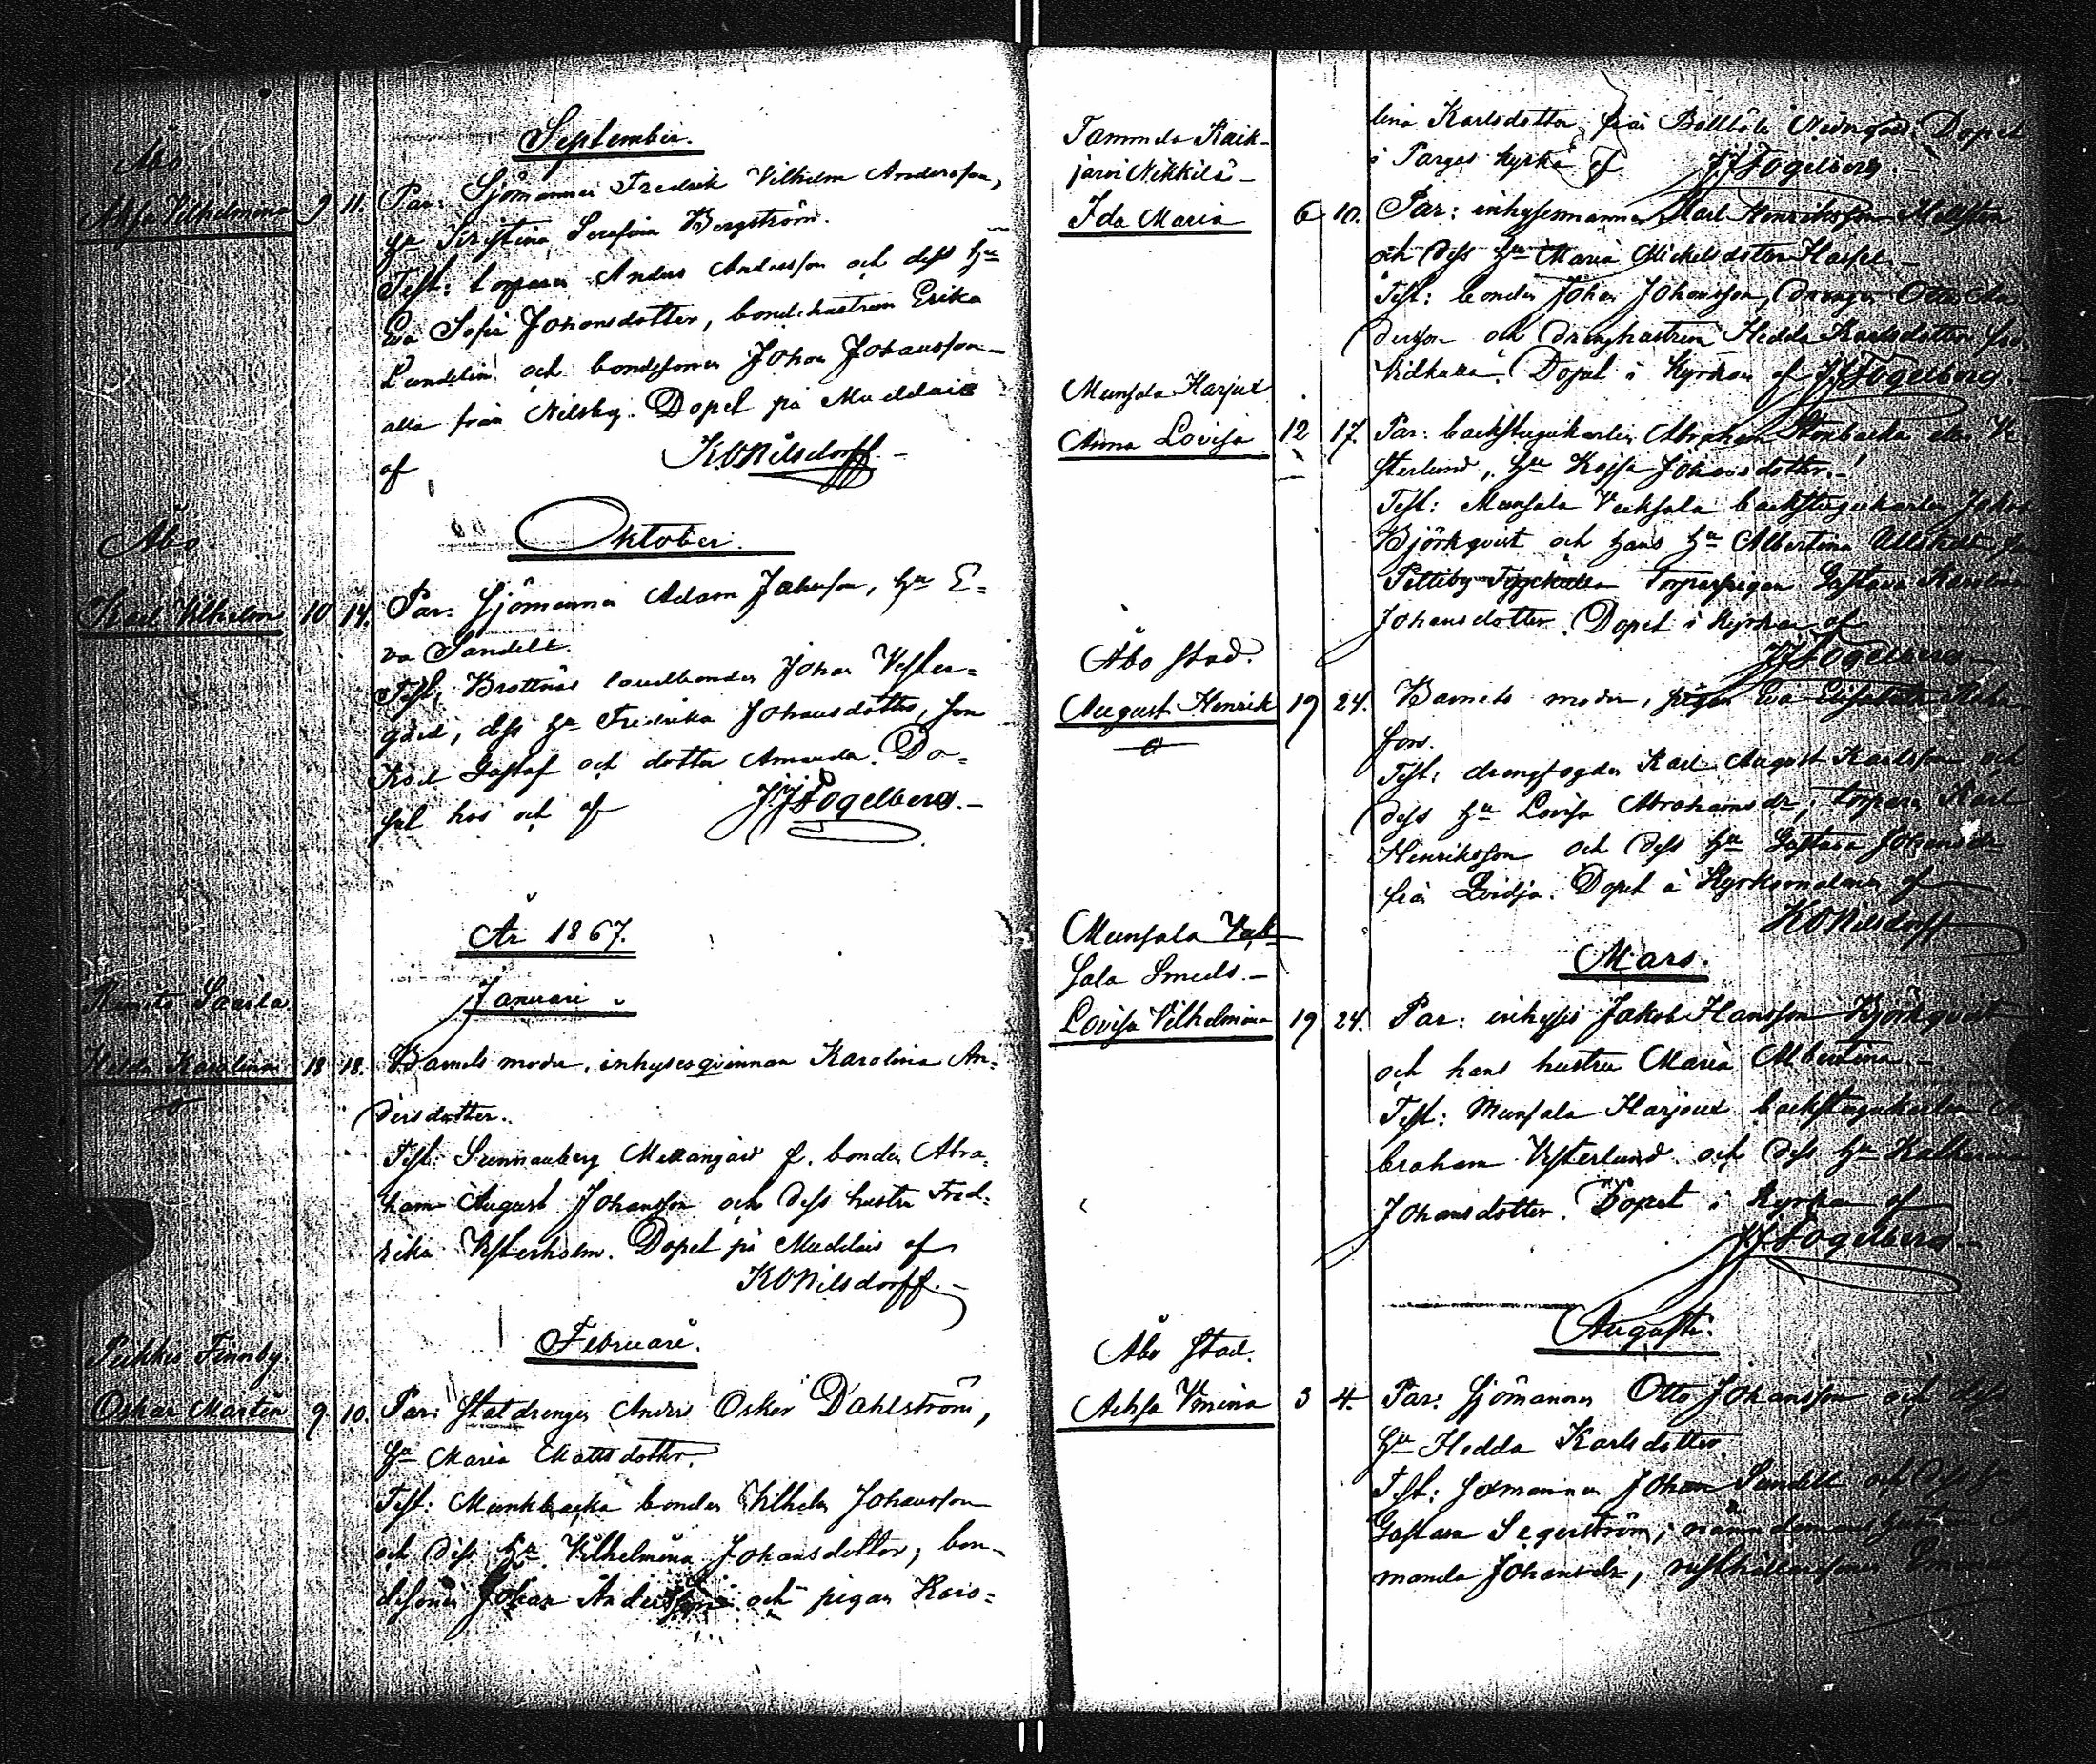 September.
Åbo.
Axsa Vilhelmina 9 11. Par: Sjömannen Fredrik Vilhelm Andersson,
hu Kristina Serafina Bergström.
Test: torparen Anders Andersson och dess hu
Eva Sofia Johansdotter, bondehustrun Erika
Lundelin och bondesonen Johan Johansson
alla från Nilsby. Döpet på Muddais
af KONilsdorff.
Oktober.
Åbo
Karl Vilhelm 10 14. Par: Sjömannen Adam Johansson, hu E=
va Sandell.
Test: Brottnäs landbonden Johan Vester=
gård, dess hu Fredrika Johansdotter, son
Karl Gustaf och dotter Amanda. Dö=
pet hos och af JJFogelberg.
År 1867.
Januari
Rimito
Hilda Karolina 18 18. Barnets moder, inhysesqvinnan Karolina An=
dersdotter.
Test: Sunnanberg Mellangård f. bonden Abra=
ham August Johansson och dess hustru Fred=
rika Vesterholm. Döpet på Muddais af
KONilsdorff.
Februari.
Pikkis Finnby.
Oskar Martin 9 10. Par: Statdrengen Anders Oskar Dahlström,
hu Maria Mattsdotter.
Test: Munkbacka bonden Vilhelm Johansson
och dess hu Vilhelmina Johansdotter; bon=
desonen Johan Andersson och pigan Karo=
lina Karlsdotter, från Bollböle Nedergård. Döpet
i Pargas kyrka af JJFogelberg.
Tammela Kaik-
järvi Nikkilä
Ida Maria 6 10. Par: inhysesmannen Karl Henriksson Mellsten
och dess hu Maria Mickelsdotter Hassel.
Test: bonden Johan Johansson, drengen Otto An
dersson och drenghustrun Hedda Karlsdotter från
Vidkulla. Döpet i Kyrkan af JJFogelberg.
Munsala Harjux
Anna Lovisa 12 17. Par: backstugukarlen Abraham Storbacka eller Ve
sterlund, hu Kajsa Johansdotter.
Test: Munsala Vexsala backstugukarlen Jakob
Björkqvist och hans hu Albertina
Pettiby torparpigan Gustava Karolina
Johansdotter. Döpet i Kyrkan af
JJFogelberg
Åbo Stad.
August Henrik 19 24. Barnets moder, pigan Eva Elisabeth
fors.
Test: drengfogden Karl August Karlsson och
dess hu Lovisa Abrahamsdr, torparen Karl
Henriksson och dess hu Gustava Johansdr
från Qvidja. Döpet å Kyrkomalmen af
KONilsdorff
Mars.
Munsala Vex-
sala Smeds.
Lovisa Vilhelmina 19 24. Par: inhyses Jakob Hansson Björkqvist
och hans hustru Maria Albertina
Test: Munsala Harjoux backstugukarlen A
braham Vesterlund och dess hu Katharina
Johansdotter. Döpet i Kyrkan af
JJFogelberg.
Augusti.
Åbo Stad.
Achsa Vmina 3 4. Par: Sjömannen Otto Johansson och dess
hu Hedda Karlsdotter.
Test: sexmannen Johan Sundell och dess hu
Gustava Segerström; nämndemans
manda Johansdr, rusthållarsonen